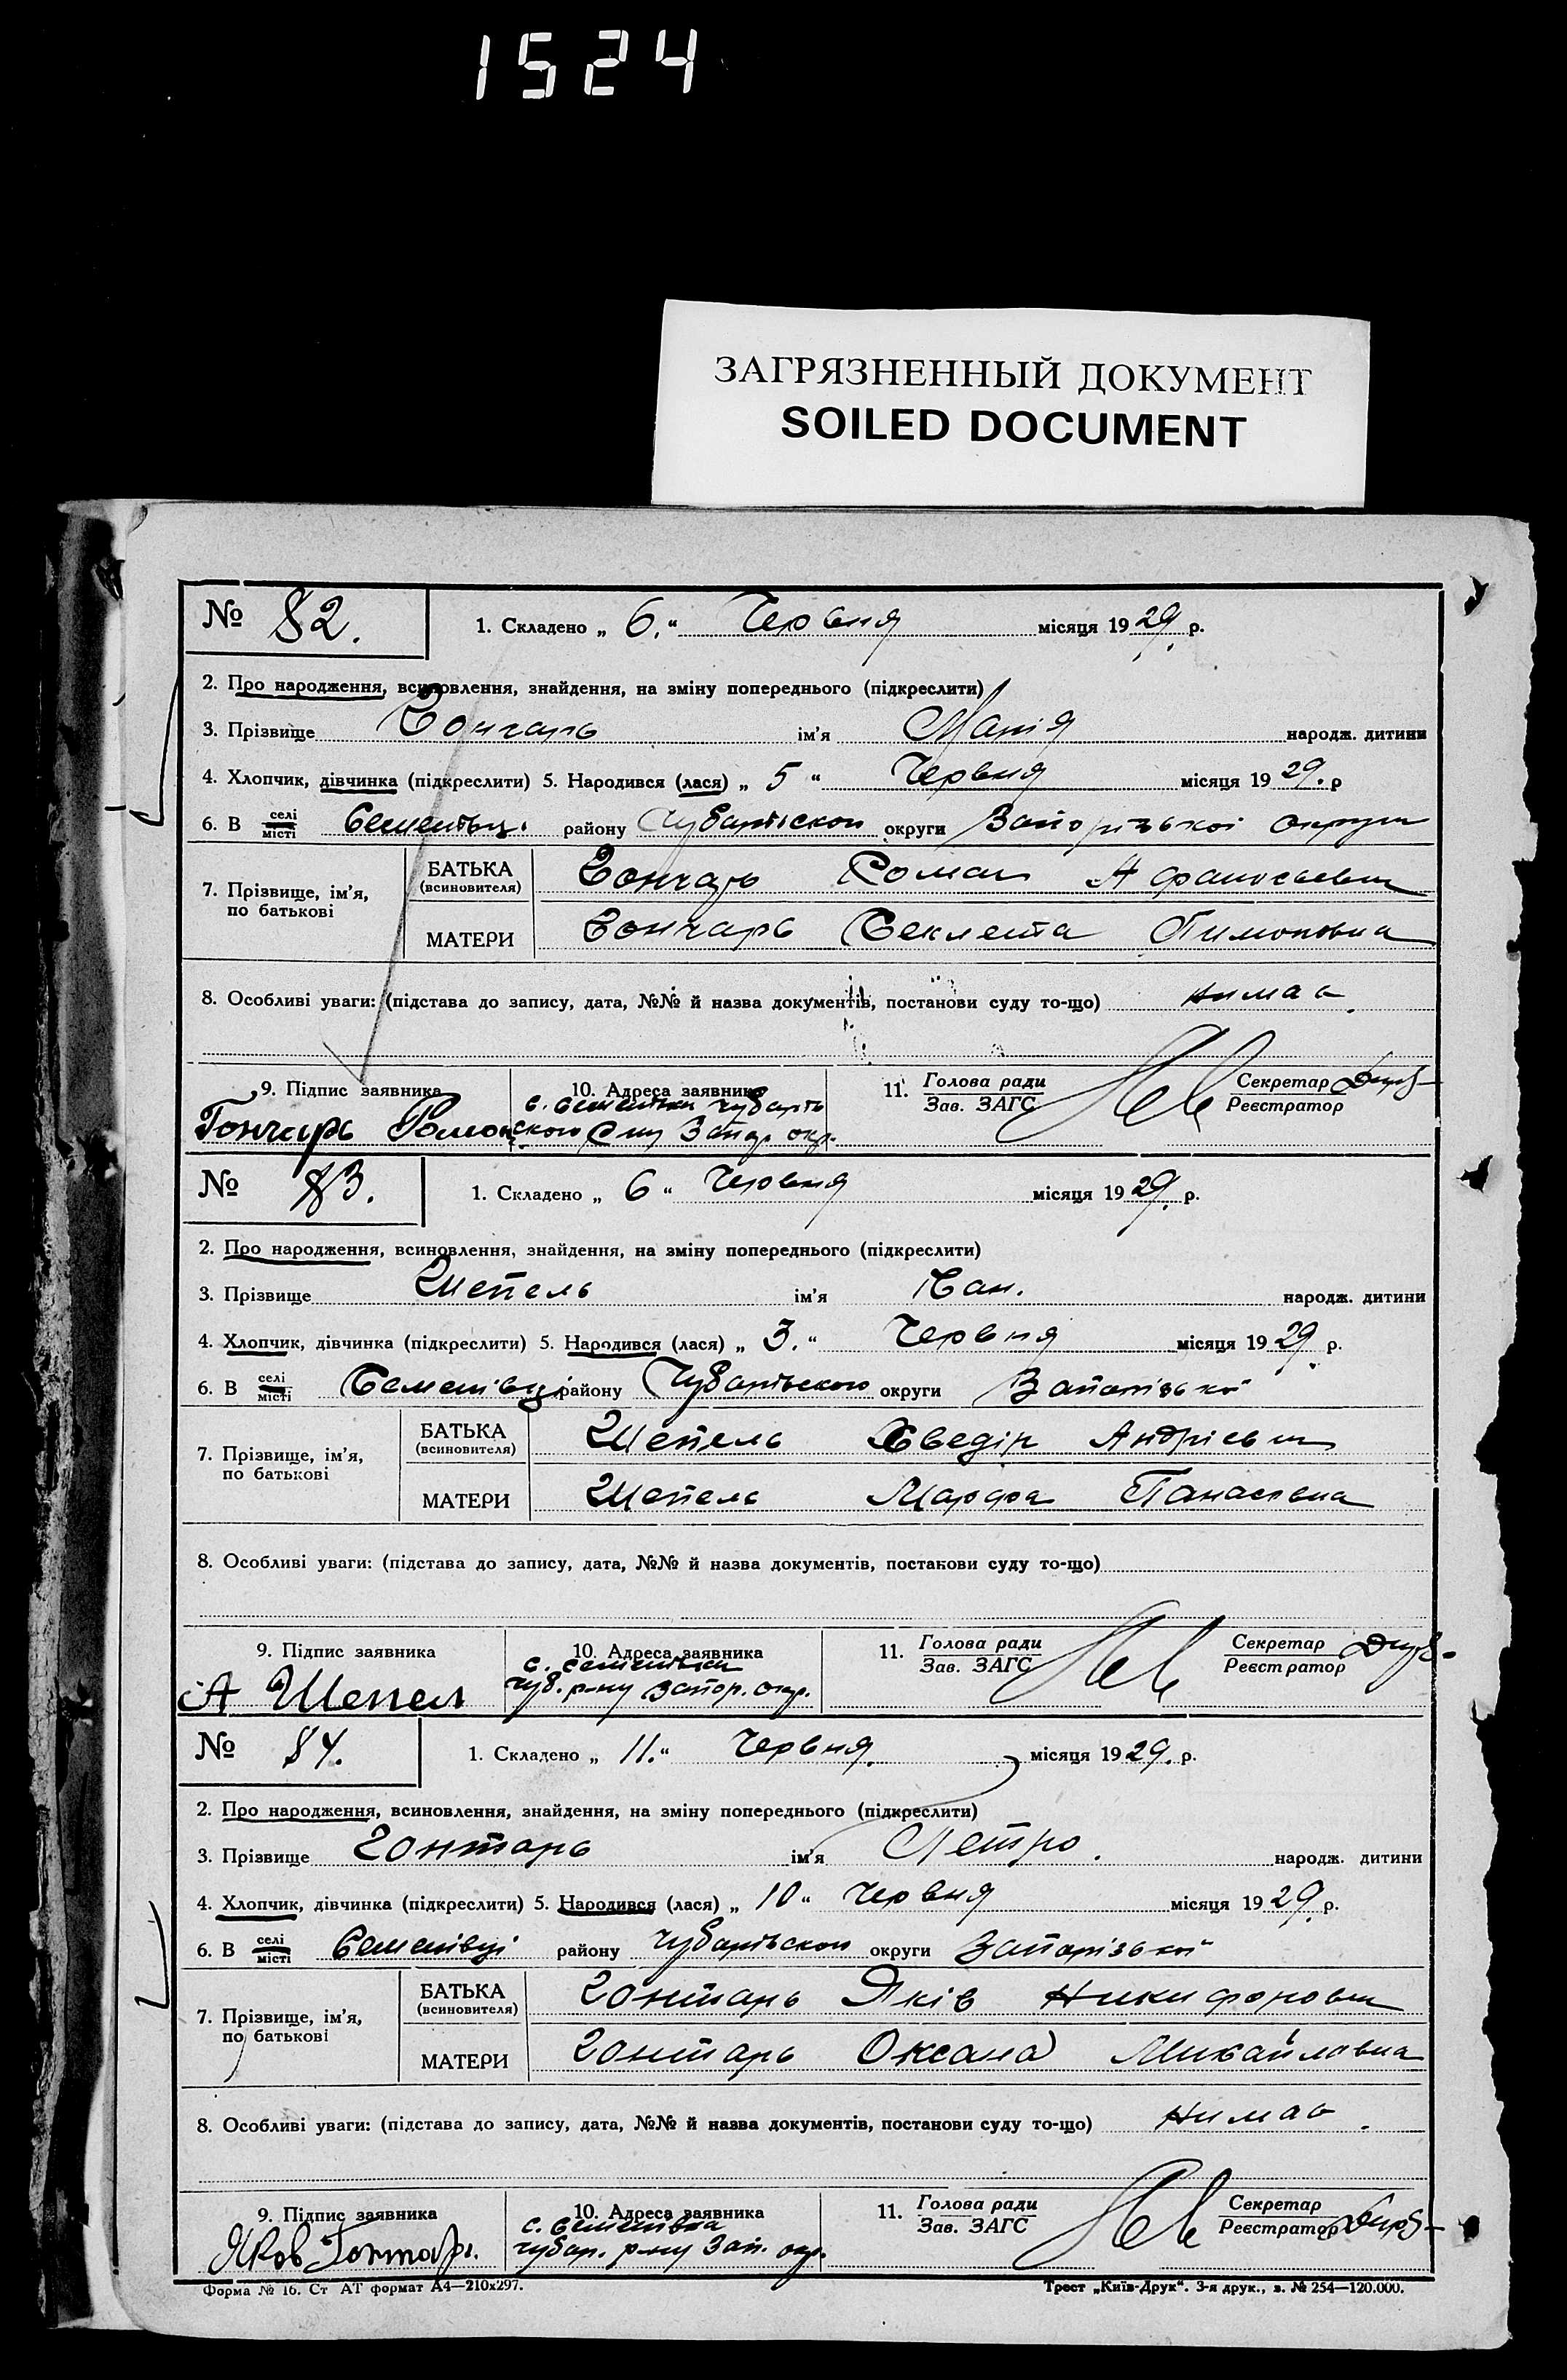 1524
ЗАГРЯЗНЕННЫЙ ДОКУМЕНТ
SOILED DOCUMENT
№ 82. 1. Складено „ 6. “ Червня місяця 1929. р.
2. Про народження, всиновлення, знайдення, на зміну попереднього (підкреслити)
3. Прізвище Гончарь ім'я Марія народж. дитини
4. Хлопчик, дівчинка (підкреслити) 5. Народився (лася) „ 5 “ Червня місяця 1929. р
6. В селі місті Семенівці. району Чубарівскои округи Запорізької округи
7. Прізвище, ім'я, по батькові
БАТЬКА (всиновителя) Гончарь Роман
МАТЕРИ Гончарь Феклета
8. Особливі уваги: (підстава до запису, дата, №№ й назва документів, постанови суду то-що) нимає
9. Підпис заявника 10. Адреса заявника 11. Голова ради Зав. ЗАГС Секретар Реєстратор
Гончарь Роман с. Семенівка
№ 83. 1. Складено „ 6 “ Червня місяця 1929. р.
2. Про народження, всиновлення, знайдення, на зміну попереднього (підкреслити)
3. Прізвище Шепель ім'я народж. дитини
4. Хлопчик, дівчинка (підкреслити) 5. Народився (лася) „ 3. “ Червня місяця 1929 р.
6. В селі місті Семенівці району Чубарівського округи Запорізької
7. Прізвище, ім'я, по батькові
БАТЬКА (всиновителя) Шепель Хведір Андрієвич
МАТЕРИ Шепель Марфа Панасовна
8. Особливі уваги: (підстава до запису, дата, №№ й назва документів, постанови суду то-що)
9. Підпис заявника 10. Адреса заявника 11. Голова ради Зав. ЗАГС Секретар Реєстратор
А Шепел с. Семенівка
Чуб. р-ну Запор. окр.
№ 84. 1. Складено „ 11. “ Червня. місяця 1929. р.
2. Про народження, всиновлення, знайдення, на зміну попереднього (підкреслити)
3. Прізвище Гонтарь ім'я Петро. народж. дитини
4. Хлопчик, дівчинка (підкреслити) 5. Народився (лася) „ 10 “ Червня місяця 1929. р.
6. В селі місті Семенівці району Чубарівскои округи Запорізької
7. Прізвище, ім'я, по батькові
БАТЬКА (всиновителя) Гонтарь Яків Никифорович
МАТЕРИ Гонтарь Оксана Михайловна
8. Особливі уваги: (підстава до запису, дата, №№ й назва документів, постанови суду то-що) нимає.
9. Підпис заявника 10. Адреса заявника 11. Голова ради Зав. ЗАГС Секретар Реєстратор
Яков Гонтарь. с. Семенівка
Чубар. р-ну Зап. окр.
Форма № 16. Ст АТ формат А4—210х297. Трест „Київ-Друк“. 3-я друк., з. № 254—120.000.